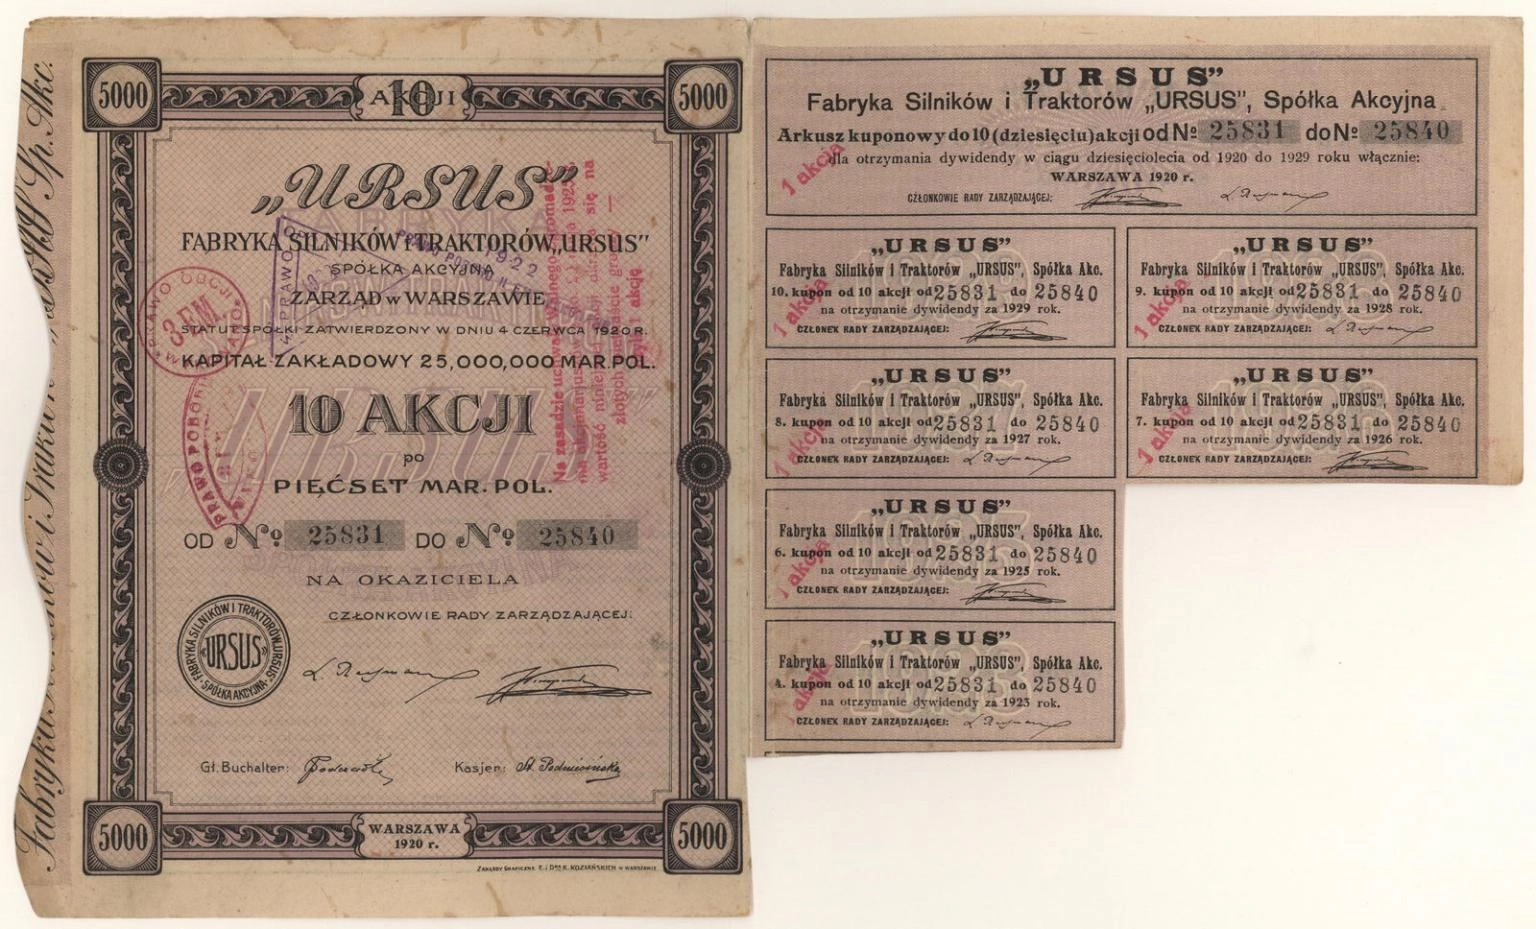 5000
10
AKCJI
5000
„URSUS”
FABRYKA SILNIKÓW i TRAKTORÓW „URSUS”
SPÓŁKA AKCYJNA
ZARZĄD w WARSZAWIE
STATUT SPÓŁKI ZATWIERDZONY W DNIU 4 CZERWCA 1920 R.
KAPITAŁ ZAKŁADOWY 25,000,000 MAR. POL.
10 AKCJI
po
PIĘĆSET MAR. POL.
OD № 25831 DO № 25840
NA OKAZICIELA
CZŁONKOWIE RADY ZARZĄDZAJĄCEJ:
FABRYKA SILNIKÓW I TRAKTORÓW „URSUS”
„URSUS”
SPÓŁKA AKCYJNA
Gł. Buchalter:
Kasjer:
5000
WARSZAWA
1920 r.
5000
ZAKŁADY GRAFICZNE E. i Dra K. KOZIAŃSKICH w WARSZAWIE
PRAWO
3 EM.
1922
PRAWO POBOR
Na zasadzie
wartość niniejszej
się na
złotych
1 akcję
Sp. Akc.
Fabryka
i Trakt
„URSUS”
Fabryka Silników i Traktorów „URSUS”, Spółka Akcyjna
Arkusz kuponowy do 10 (dziesięciu) akcji od № 25831 do № 25840
dla otrzymania dywidendy w ciągu dziesięciolecia od 1920 do 1929 roku włącznie:
WARSZAWA 1920 r.
CZŁONKOWIE RADY ZARZĄDZAJĄCEJ:
1 akcja
„URSUS”
Fabryka Silników i Traktorów „URSUS”, Spółka Akc.
10. kupon od 10 akcji od 25831 do 25840
na otrzymanie dywidendy za 1929 rok.
CZŁONEK RADY ZARZĄDZAJĄCEJ:
1 akcja
„URSUS”
Fabryka Silników i Traktorów „URSUS”, Spółka Akc.
9. kupon od 10 akcji od 25831 do 25840
na otrzymanie dywidendy za 1928 rok.
CZŁONEK RADY ZARZĄDZAJĄCEJ:
1 akcja
„URSUS”
Fabryka Silników i Traktorów „URSUS”, Spółka Akc.
8. kupon od 10 akcji od 25831 do 25840
na otrzymanie dywidendy za 1927 rok.
CZŁONEK RADY ZARZĄDZAJĄCEJ:
1 akcja
„URSUS”
Fabryka Silników i Traktorów „URSUS”, Spółka Akc.
7. kupon od 10 akcji od 25831 do 25840
na otrzymanie dywidendy za 1926 rok.
CZŁONEK RADY ZARZĄDZAJĄCEJ:
1 akcja
„URSUS”
Fabryka Silników i Traktorów „URSUS”, Spółka Akc.
6. kupon od 10 akcji od 25831 do 25840
na otrzymanie dywidendy za 1925 rok.
CZŁONEK RADY ZARZĄDZAJĄCEJ:
1 akcja
„URSUS”
Fabryka Silników i Traktorów „URSUS”, Spółka Akc.
4. kupon od 10 akcji od 25831 do 25840
na otrzymanie dywidendy za 1923 rok.
CZŁONEK RADY ZARZĄDZAJĄCEJ:
1 akcja